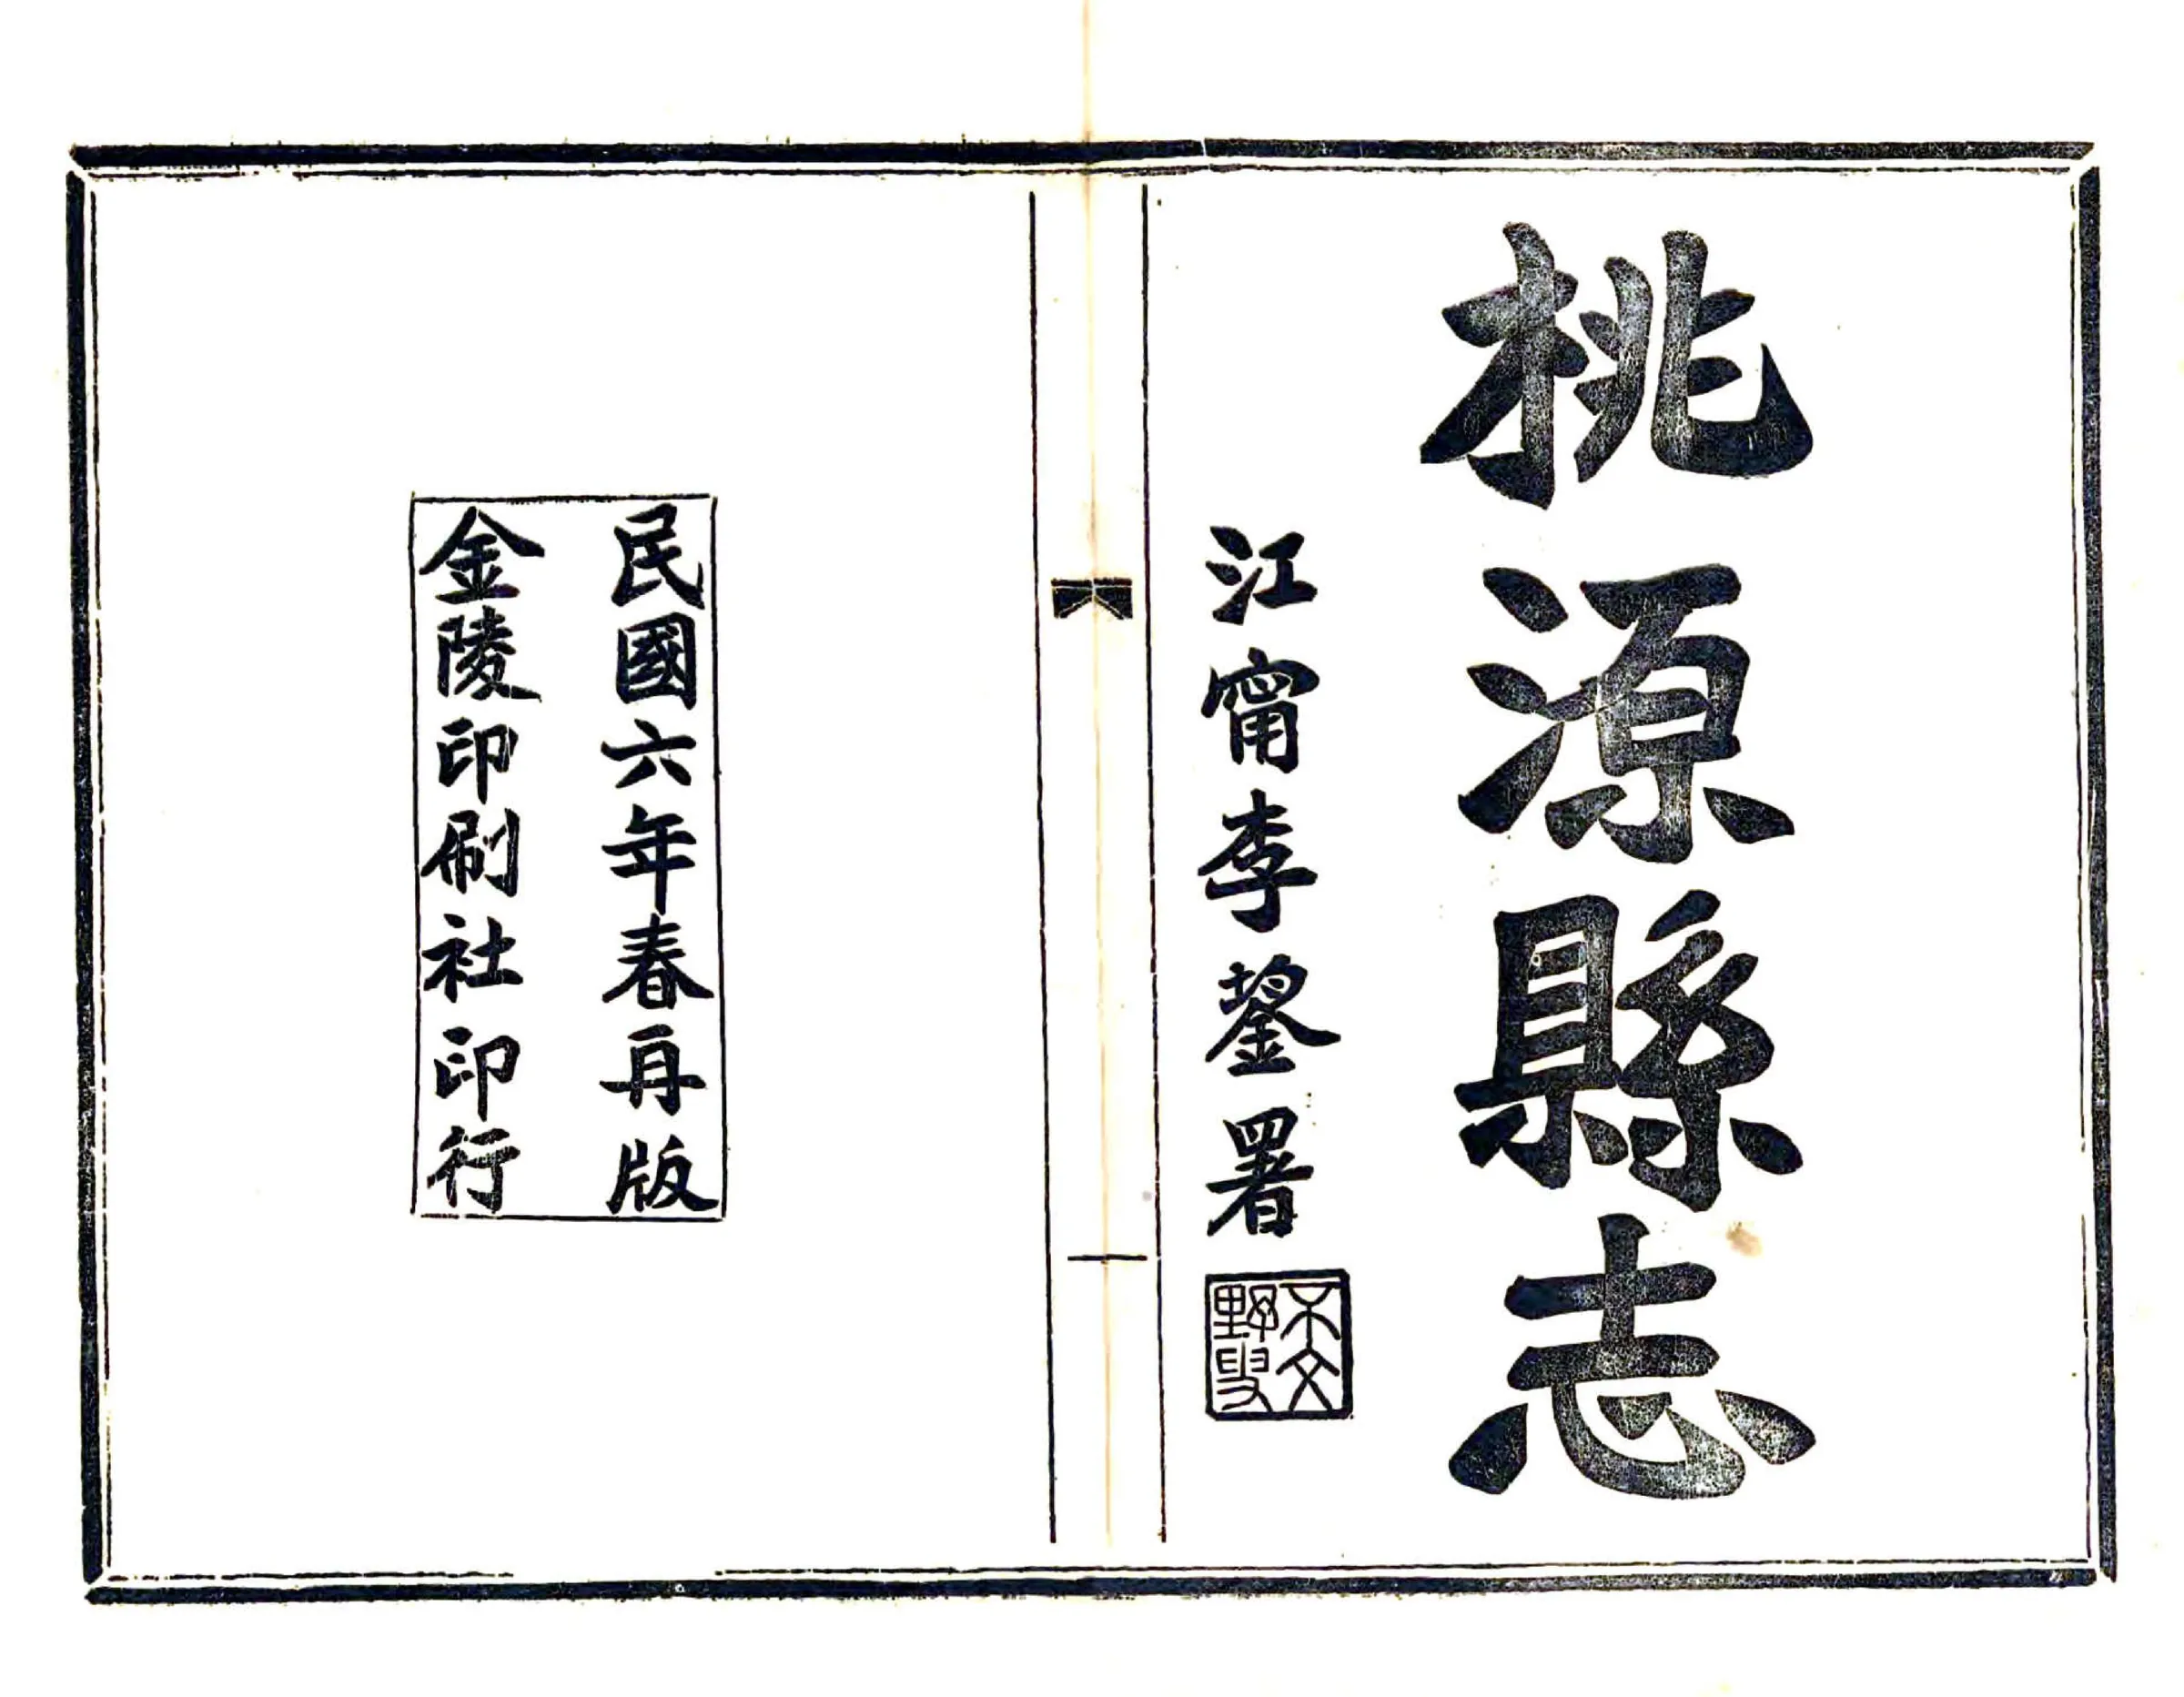 桃源縣志
江甯李鋆署
不文野叟
民國六年春再版
金陵印刷社印行